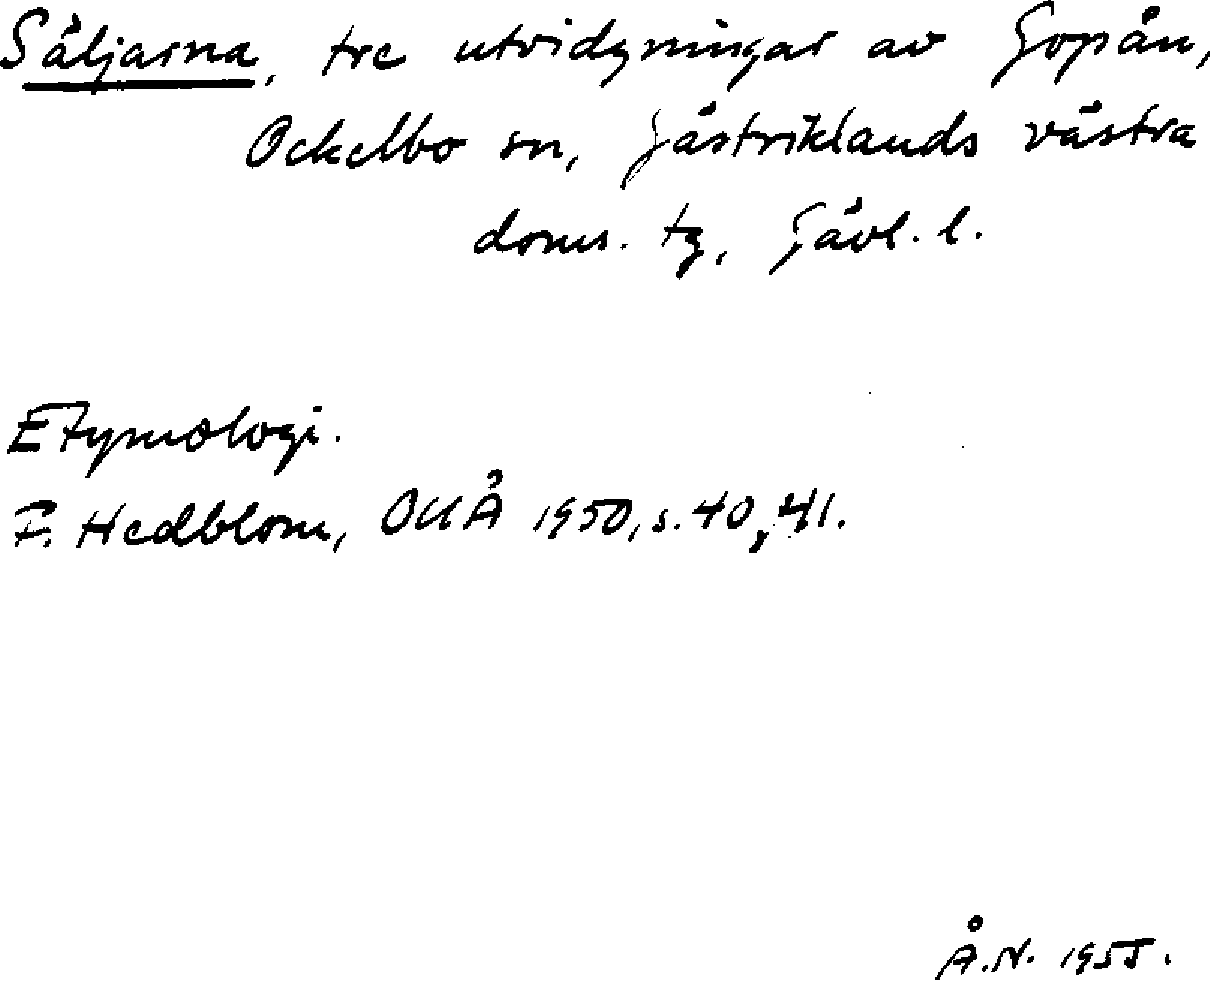 Säljarna, tre utvidgningar av Gopån,
Ockelbo sn, Gästriklands västra
doms. tg, Gävl. l.
Etymologi.
F. Hedblom, OUÅ 1950, s. 40, 41.
Å.N. 1955.